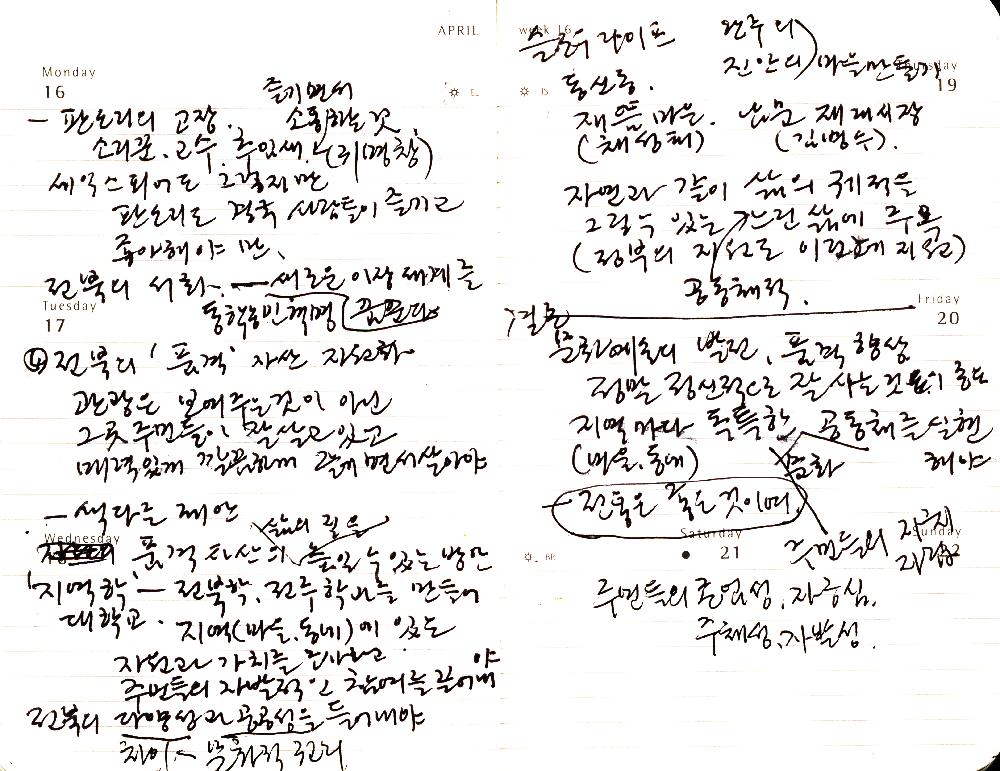 APRIL
Monday
16
즐기면서
- 판소리의 고장. 소통하는 것
소리꾼. 고수. 추임새. (귀명창)
세익스피어도 그렇지만
판소리도 결국 사람들이 즐기고
좋아해야 만.
전북의 서화. - 새로운 이상세계를
동학농민혁명 꿈꾼다
Tuesday
17
④ 전북의 '품격' 자산 자원화
관광은 보여주는 것이 아닌
그곳 주민들이 잘 살고 있고
매력있게 깔끔하게 즐기면서 살아야
- 색다른 제안
삶의 질을
Wednesday
품격 자산의 높일 수 있는 방안
'지역학' - 전북학, 전주학 만들어
대학교. 지역(마을, 동네)에 있는
자원과 가치를 조사하고
주민들의 자발적인 참여를 끌어내야
전북의 다양성과 공공성을 들어내야
차이 - 문화적 논리
week 16
슬로라이프 완주의
진안의 마을만들기
Thursday
19
동산동.
재뜸마을. 남문 재래시장
(채성태) (김병수).
자연과 같이 삶의 궤적을
그릴 수 있는 느린 삶에 주목
(정부의 지원도 이런 것에 지원)
공동체적.
Friday
20
결론
문화예술의 발전, 품격 향상
정말 정신적으로 잘 사는 것
지역마다 독특한 공동체를 실현
(마을, 동네) 문화 해야
전통은 좋은 것이며,
Saturday
21
Sunday
주민들의 자긍심
주민들의 자긍심.
주체성, 자발성.